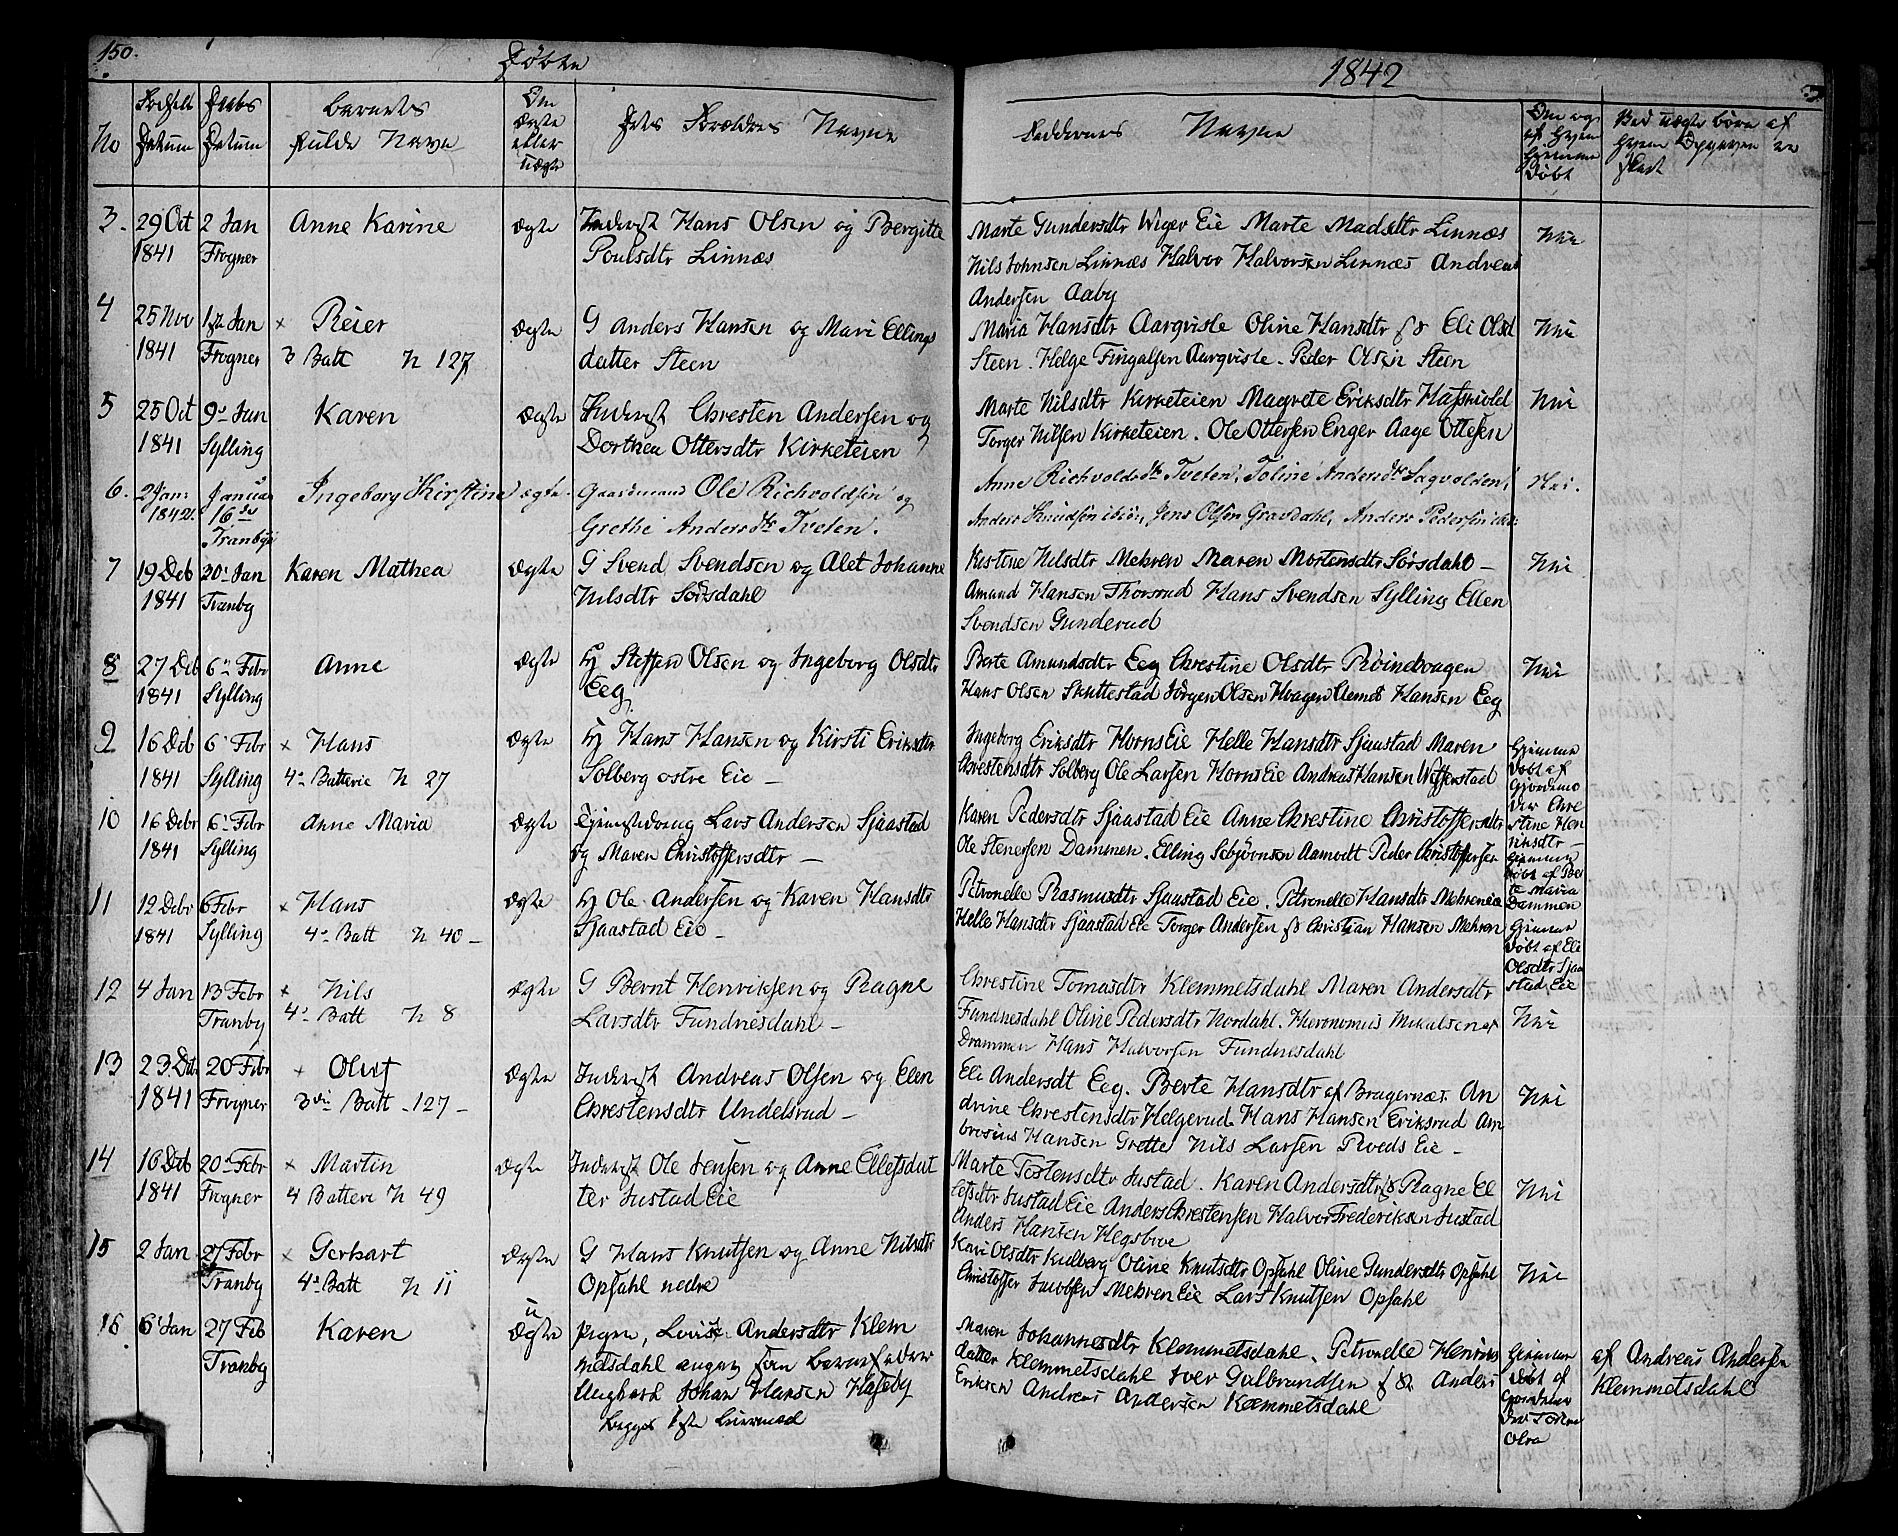 150.
Døbte
1842
No
Fødsels Datum
Daabs Datum
Barnets fulde Navn
Om ægte eller uægte
Dets Forældres Navne
Faddernes Navne
Døbt
Ved uægte børn af
3. 29 Oct 2 Jan Anne Karine ægte Inderst Hans Olsen og Bergitte Marte Gundersdtr Wiger Eie Marte Madsdtr Linnæs Nei
1841 Frogner Poulsdtr Linnæs Nils Johnsen Linnæs Halvor Halvorsen Linnæs Andreas
Andersen Aaby
4 25 Nov 1ste Jan × Reier ægte G Anders Hansen og Mari Ellings Maria Hansdtr Aarqvisle Oline Hansdtr Eli Olsd Nei
1841 Frogner 3 Batt N 127 datter Steen Steen. Helge Fingalsen Aarqvisle. Peder Olsen Steen
5 25 Oct 9. Jan Karen ægte Inderst Chresten Andersen og Marte Nilsdtr Kirketeien Magrete Eriksdtr Nei
1841 Sylling Dorthea Ottersdtr Kirketeien Torger Nilsen Kirketeien. Ole Ottersen Enger Aage Ottesen
6. 2 Jan: Januar Ingeborg Kirstine ægte. Gaardmand Ole Richvoldsen og Anne Richvoldsdtr Tveten, Toline Andersdtr Sagvolden, Nei.
1842. 16de Tranby Grethe Andersdtr Tveten. Anders Knudsen ibid:, Jens Olsen Gravdahl, Anders Pedersen
7 19 Deb 20. Jan Karen Mathea ægte G Svend Svendsen og Alet Johanne Kistene Nilsdtr Mehren Maren Mortensdtr Sørsdahl – Nei
1841 Tranby Nilsdtr Sørsdahl Amund Hansen Thorsrud Hans Svendsen Sylling Ellen
Svendsen Gunderud
8 27 Deb 6. Febr Anne ægte Hj Steffen Olsen og Ingeborg Olsdtr Berte Amundsdtr Eeg Chrestine Olsdtr Røinehvagen Nei
1841 Sylling Eeg Hans Olsen Skuttestad Jørgen Olsen Hvagen Hansen Eeg
9 16 Deb 6. Febr × Hans ægte Hj Hans Hansen og Kirsti Eriksdtr Ingeborg Eriksdtr Horns Eie Helle Hansdtr Sjaastad Maren Hjemme
1841 Sylling 4. Batterie N 27 Solberg østre Eie – Chrestensdtr Solberg Ole Larsen Horns Eie Andreas Hansen døbt af
Gjordemo
der Chre
stine Hen
riksdtr –
10 16 Debr 6. Febr Anne Maria ægte Lars Andersen Sjaastad Karen Pedersdtr Sjaastad Eie Anne Chrestine Christoffersdtr Hjemme
1841 Sylling og Maren Christoffersdtr – Ole Stenersen Dammen. Elling Aamodt Peder Christoffersen døbt af Ber
te Maria
Dammen
11 12 Debr 6 Febr × Hans ægte Hj Ole Andersen og Karen Hansdtr Petronelle Rasmusdtr Sjaastad Eie. Petronelle Hansdtr Mehren Eie Hjemme
1841 Sylling 4. Batt N 40 – Sjaastad Eie – Helle Hansdtr Sjaastad Eie Torger Andersen Christian Hansen Mehren døbt af Eli
Olsdtr Sjaa
stad Eie
12 4 Jan 13 Febr × Nils ægte G Bernt Henriksen og Ragne Chrestine Tomasdtr Klemmetsdahl Maren Andersdtr
Tranby 4. Batt N 8 Larsdtr Fundnesdahl – Fundnesdahl Oline Pedersdtr Nordahl. Hieronomus Mikalsen af Nei
Drammen Hans Halvorsen Fundnesdahl
13 23 Deb 20 Febr × Oluf ægte Inderst Andreas Olsen og Elen Eli Andersdt Eeg. Berte Hansdtr af Bragernæs An Nei
1841 Frogner 3die Batt – 127 – Chrestensdtr Undelsrud – drine Chrestensdtr Helgerud Hans Hansen Eriksrud Am
brosius Hansen Grette Nils Larsen Eie –
14 16 Deb 20. Febr × Martin ægte Inderst Ole Jensen og Anne Ellefsdat Marte Tostensdtr Justad. Karen Andersdtr Ragne El Nei
1841 Frogner 4 Batterie N 49 ter Justad Eie lefsdtr Justad Eie Anders Chrestensen Halvor Frederiksen Justad
Anders Hansen Hegsbroe
15 2 Jan 27 Febr × Gerhart ægte G Hans Knutsen og Anne Nilsdtr Kari Olsdtr Kulberg Oline Knutsdtr Opsahl Oline Gundersdtr Opsahl Nei
Tranby 4. Batt N 11 Opsahl nedre Christoffer Jacobsen Mehren Eie Lars Knutsen Opsahl
16 6. Jan 27 Feb Karen uægte Pigen, Lovise Andersdtr Klem Maren Johannesdtr Klemmetsdahl. Petronelle Henriks Hjemme af Andreas Andersen
Tranby metsdahl angav som Barnefader datter Klemmetsdahl Iver Gulbrandsen Anders døbt af Klemmetsdahl
Ungkarl Johan Hansen Eriksen Andreas Andersen Klemmetsdahl Gjordemo
der
Olva